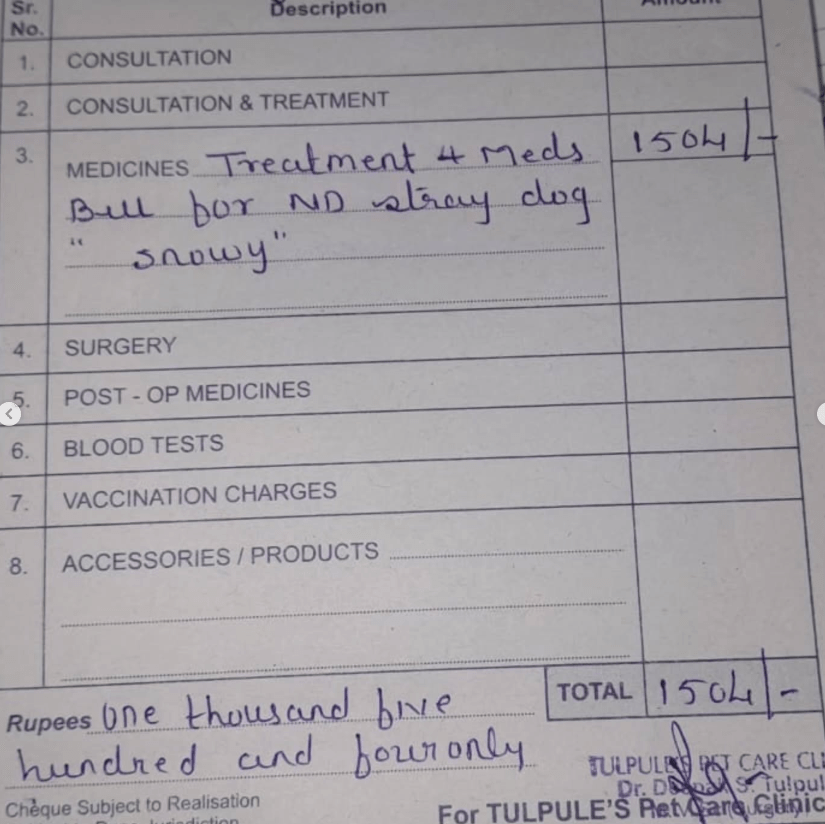 Sr. Description Amount
No.
1. CONSULTATION
2. CONSULTATION & TREATMENT
3. MEDICINES Treatment 4 Meds 1504/-
Bill for ND stray dog
" snowy"
4. SURGERY
5. POST - OP MEDICINES
6. BLOOD TESTS
7. VACCINATION CHARGES
8. ACCESSORIES / PRODUCTS
TOTAL 1504/-
Rupees One thousand five
hundred and four only
TULPULE'S PET CARE CLI
Dr. S. Tulpul
Cheque Subject to Realisation
For TULPULE'S Pet Care Clinic